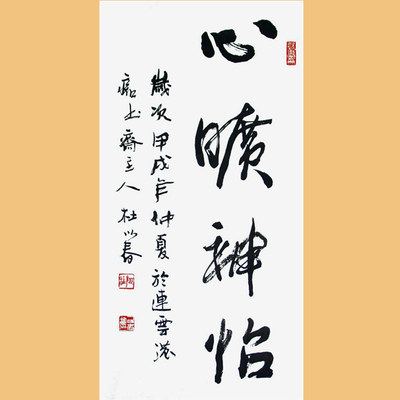 心曠神怡
歲次甲戌年仲夏於連雲港
齋主人杜以春